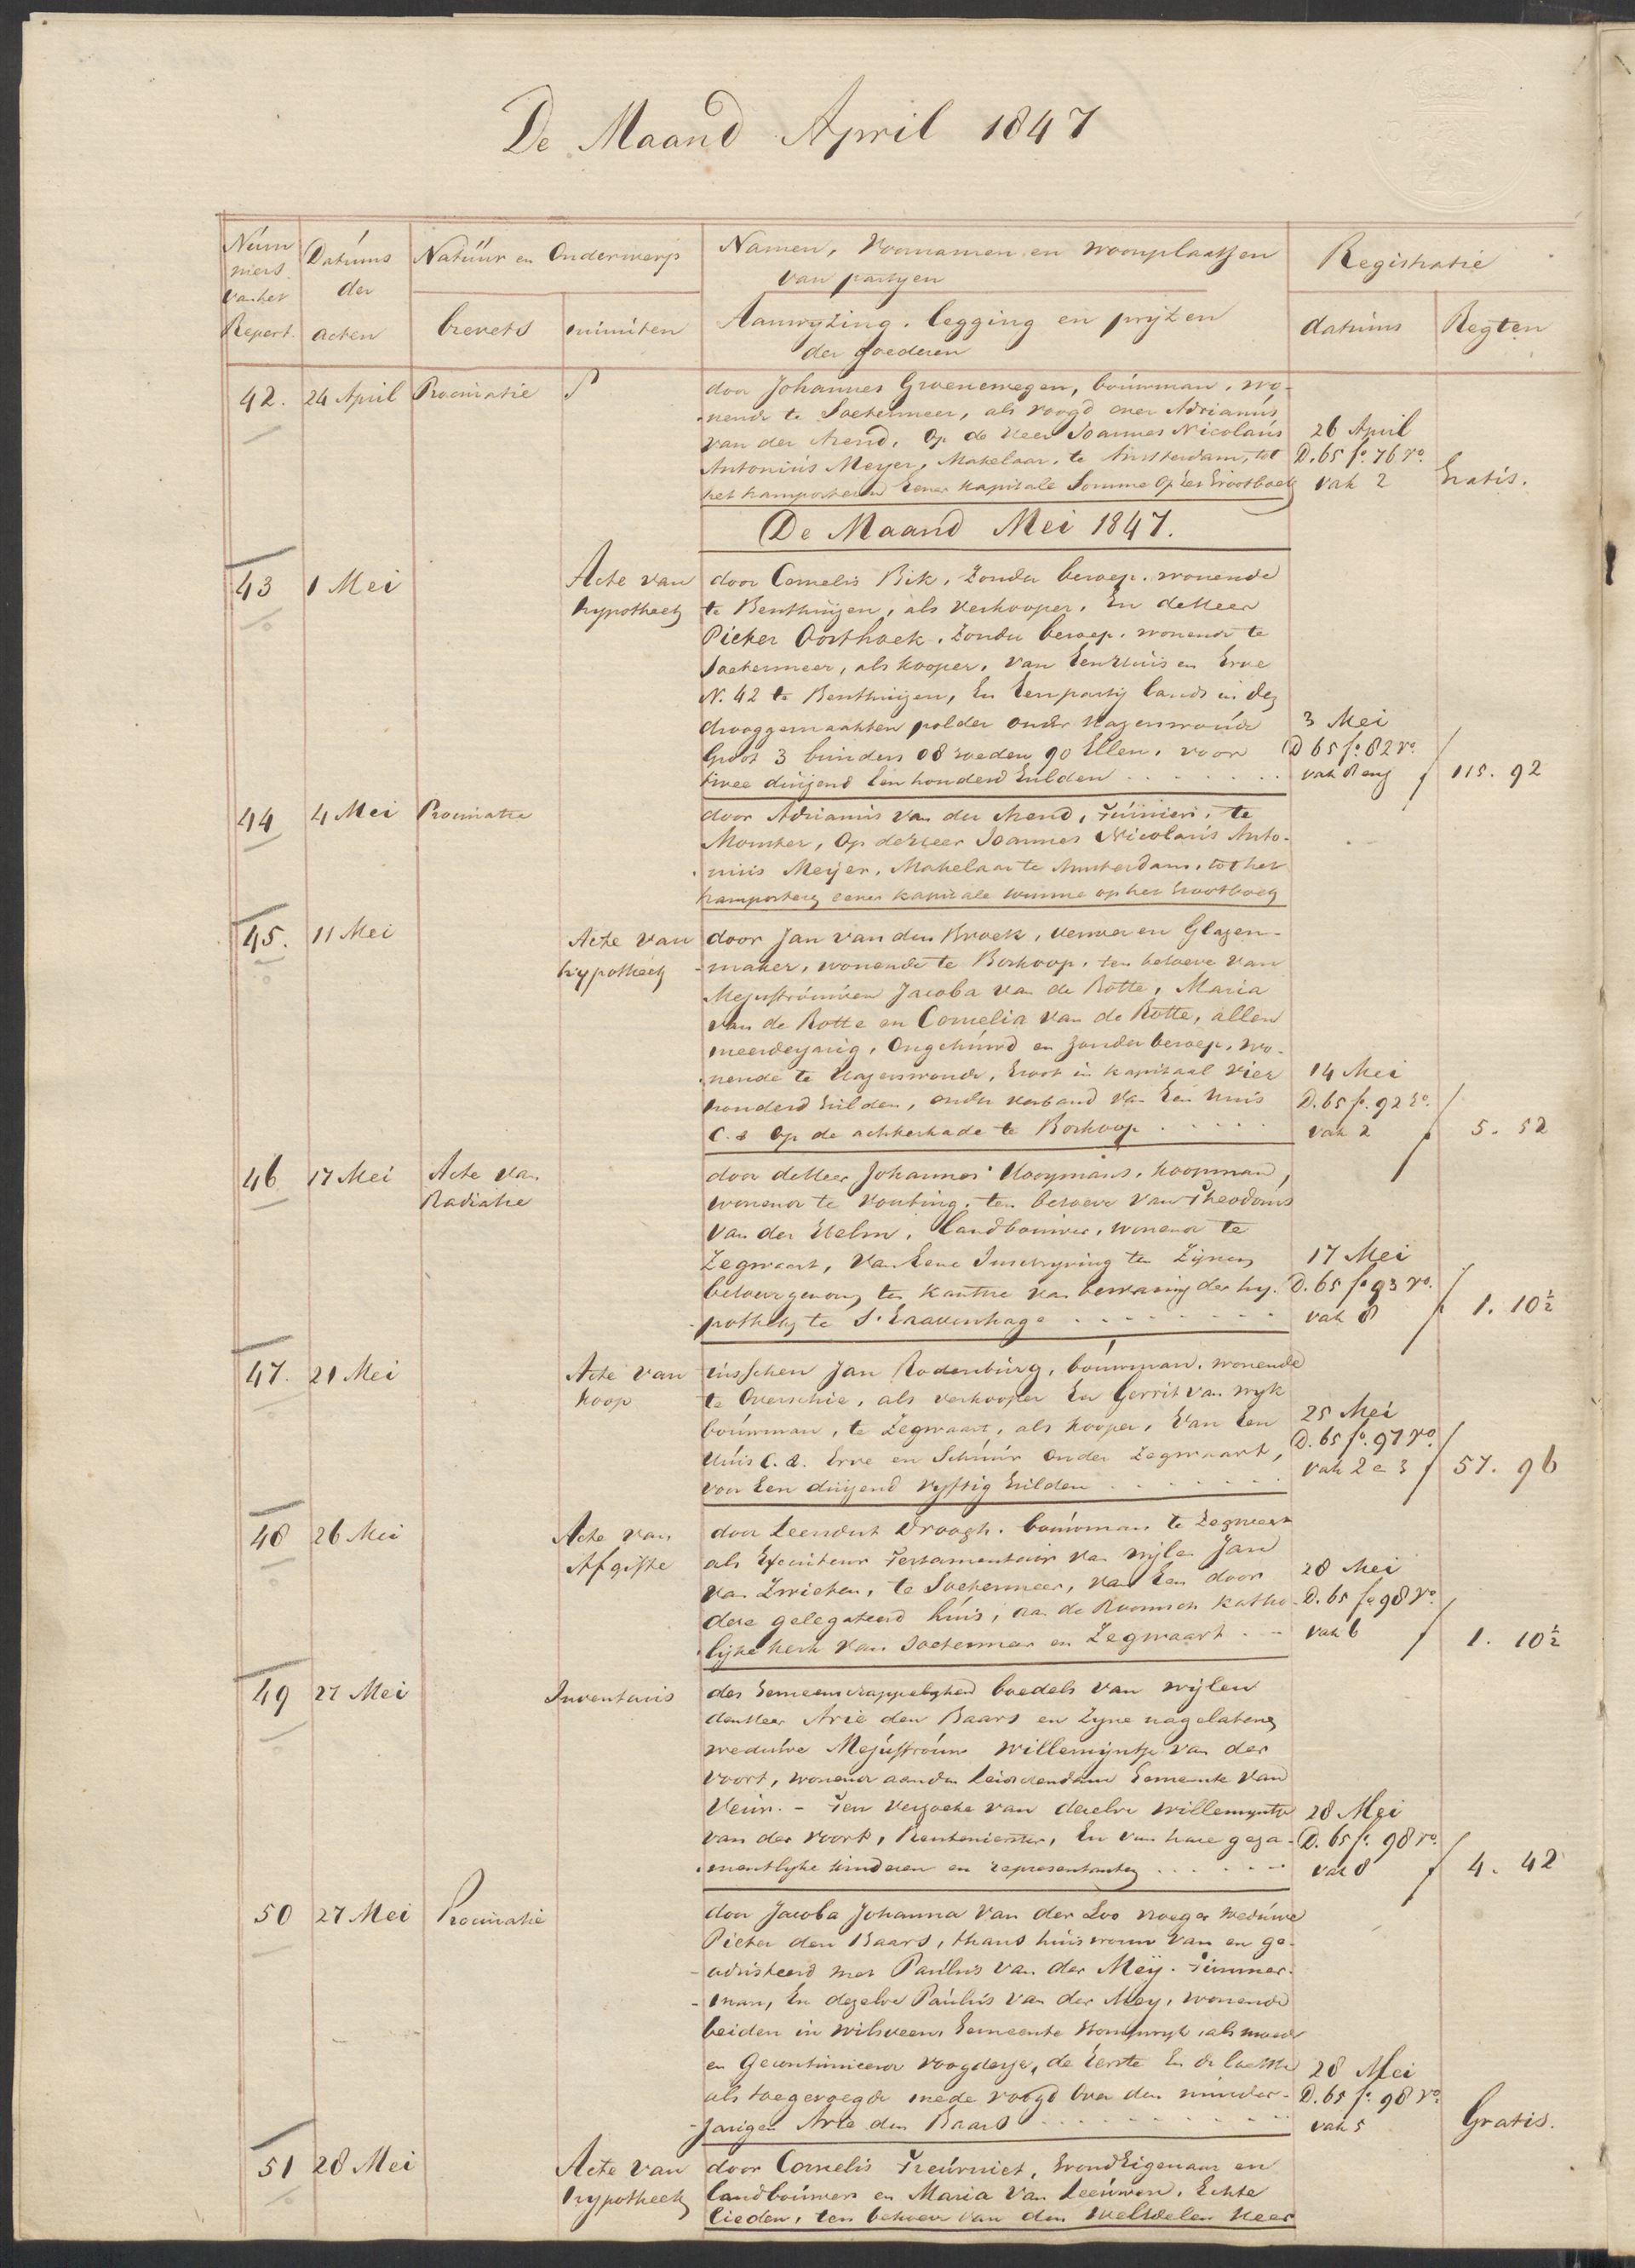 De Maand April 1847
Num
mers
van het
Repert.
Datums
der
acten
Natuur en Onderwerp
brevets
minuten
Namen, Voornamen en woonplaatsen
van partyen
Aanwyzing, legging en pryzen
der goederen
Registratie
datums
Regten
42.
24 April
Procuratie
door Johannes Groenewegen, bouwman, wo-
nende te Soetermeer, als voogd over Adrianus
van der Arend, Op de Heer Joannes Nicolaus
Antonius Meyer, Makelaar, te Amsterdam, tot
het transporteren Eener kapitale Somme Op het Grootboek
26 April
D. 65 fo. 76 vo.
vak 2
Gratis.
De Maand Mei 1847.
43
1 Mei
Acte van
hypotheek
door Cornelis Bik, Zonder beroep, wonende
te Benthuizen, als Verkooper, En de Heer
Pieter Oosthoek, Zonder beroep, wonende te
Soetermeer, als kooper, van Een Huis en Erve
N. 42 te Benthuizen, En Een party lands in de
drooggemaakten polder onder Hazerswoude
Groot 3 bunders 08 roeden 90 Ellen, voor
twee duizend Een honderd Gulden
3 Mei
D 65 fo. 82 vo.
vak 8 en
f 115. 92
44
4 Mei
Procuratie
door Adrianus van der Arend, Tuinier, te
Monster, Op de Heer Joannes Nicolaus Anto-
nius Meyer, Makelaar te Amsterdam, tot het
transporteren eener kapitale somme op het Grootboek
45.
11 Mei
Acte van
hypotheek
door Jan van den Broek, verver en Glazen-
maker, wonende te Boskoop, ten behoeve van
Mejuffrouwen Jacoba van de Rotte, Maria
van de Rotte en Cornelia van de Rotte, allen
meerderjarig, Ongehuwd en zonder beroep, wo-
nende te Hazerswoude, Groot in kapitaal vier
honderd Gulden, onder verband van Een Huis
C.A. Op de achterkade te Boskoop
14 Mei
D. 65 fo. 92 ro.
vak 2
f 5. 52
46
17 Mei
Acte van
Radiatie
door de Heer Johannes Hooymans, koopman,
wonende te Voorburg, ten behoeve van Theodorus
van der Helm, Landbouwer, wonende te
Zegwaart, van Eene Inschryving ten Zynen
behoeve genomen ten kantore van bewaring der hy-
potheken te S'Gravenhage
17 Mei
D. 65 fo 93 vo.
vak 8
f 1. 10½
47.
21 Mei
Acte van
koop
tusschen Jan Rodenburg, bouwman, wonende
te Overschie, als verkooper En Gerrit van wyk
bouwman, te Zegwaart, als kooper, Van Een
Huis C.A. Erve en Schuur onder Zegwaart,
voor Een duizend vyftig Gulden
25 Mei
D. 65 fo. 97 vo
vak 2 e 3
f 57. 96
48
26 Mei
Acte van
Afgifte
door Leendert Droogh, bouwman te Zegwaart
als Executeur Testamentair van wylen Jan
van Zwieten, te Soetermeer, van Een door
deze gelegateerd huis, aan de Roomsch Katho-
lijke kerk van Soetermeer en Zegwaart
28 Mei
D. 65 fo 98 ro
vak 6
f 1. 10½
49
27 Mei
Inventaris
des Gemeenschappelyken boedels van wylen
den Heer Arie den Baars en Zyne nagelaten
weduwe Mejuffrouw Willemyntje van der
Voort, wonende aan den Leidschendam Gemeente van
Veur. - Ten verzoeke van dezelve Willemyntje
van der Voort, Rentenierster, En van hare geza-
mentlyke kinderen en representanten
28 Mei
D. 65 fo. 98 ro
vak 8
f 4. 42
50
27 Mei
Procuratie
door Jacoba Johanna van der Loo vroeger weduwe
Pieter den Baars, thans huisvrouw van en ge-
adsisteerd met Paulus van der Mey, Timmer-
man, En dezelve Paulus van der Mey, wonende
beiden in Wilsveen Gemeente Stompwyk, als moeder
en Gecontinueerde voogdesse, de Eerste En de laatste
als toegevoegde mede voogd Over den minder-
jarigen Arie den Baars
28 Mei
D. 65 fo. 98 vo.
vak 5
Gratis.
51
28 Mei
Acte van
hypotheek
door Cornelis Treurniet, GrondEigenaar en
landbouwer en Maria van Leeuwen, Echte
lieden, ten behoeve van den WelEdelen Heer